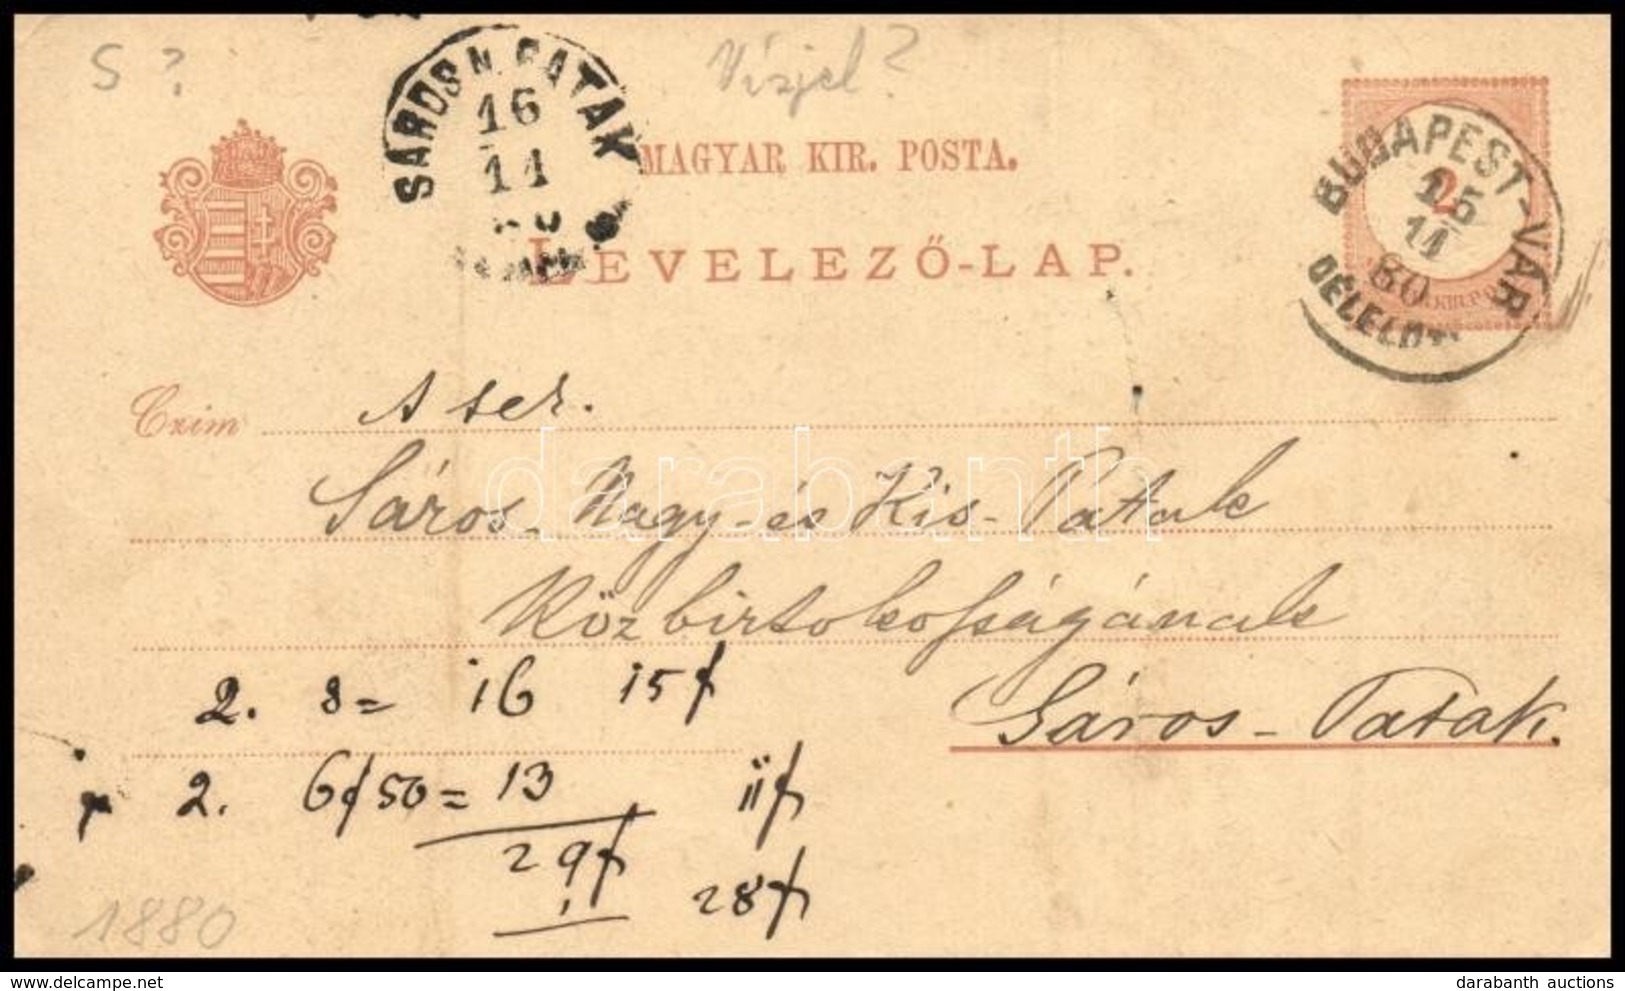 S?
Vízjel?
SÁROS N. PATAK
16
11
80
MAGYAR KIR. POSTA.
LEVELEZŐ-LAP.
BUDAPEST-VÁR
2
15
11
80
DÉLELŐT
Czim
A ter.
Sáros-Nagy-és Kis-Patak
darabanth
Közbirtokosságának
Sáros-Patak.
2. 8 = 16 15f
2. 6f50 = 13 11f
29f 28f
1880
darabanth auctions